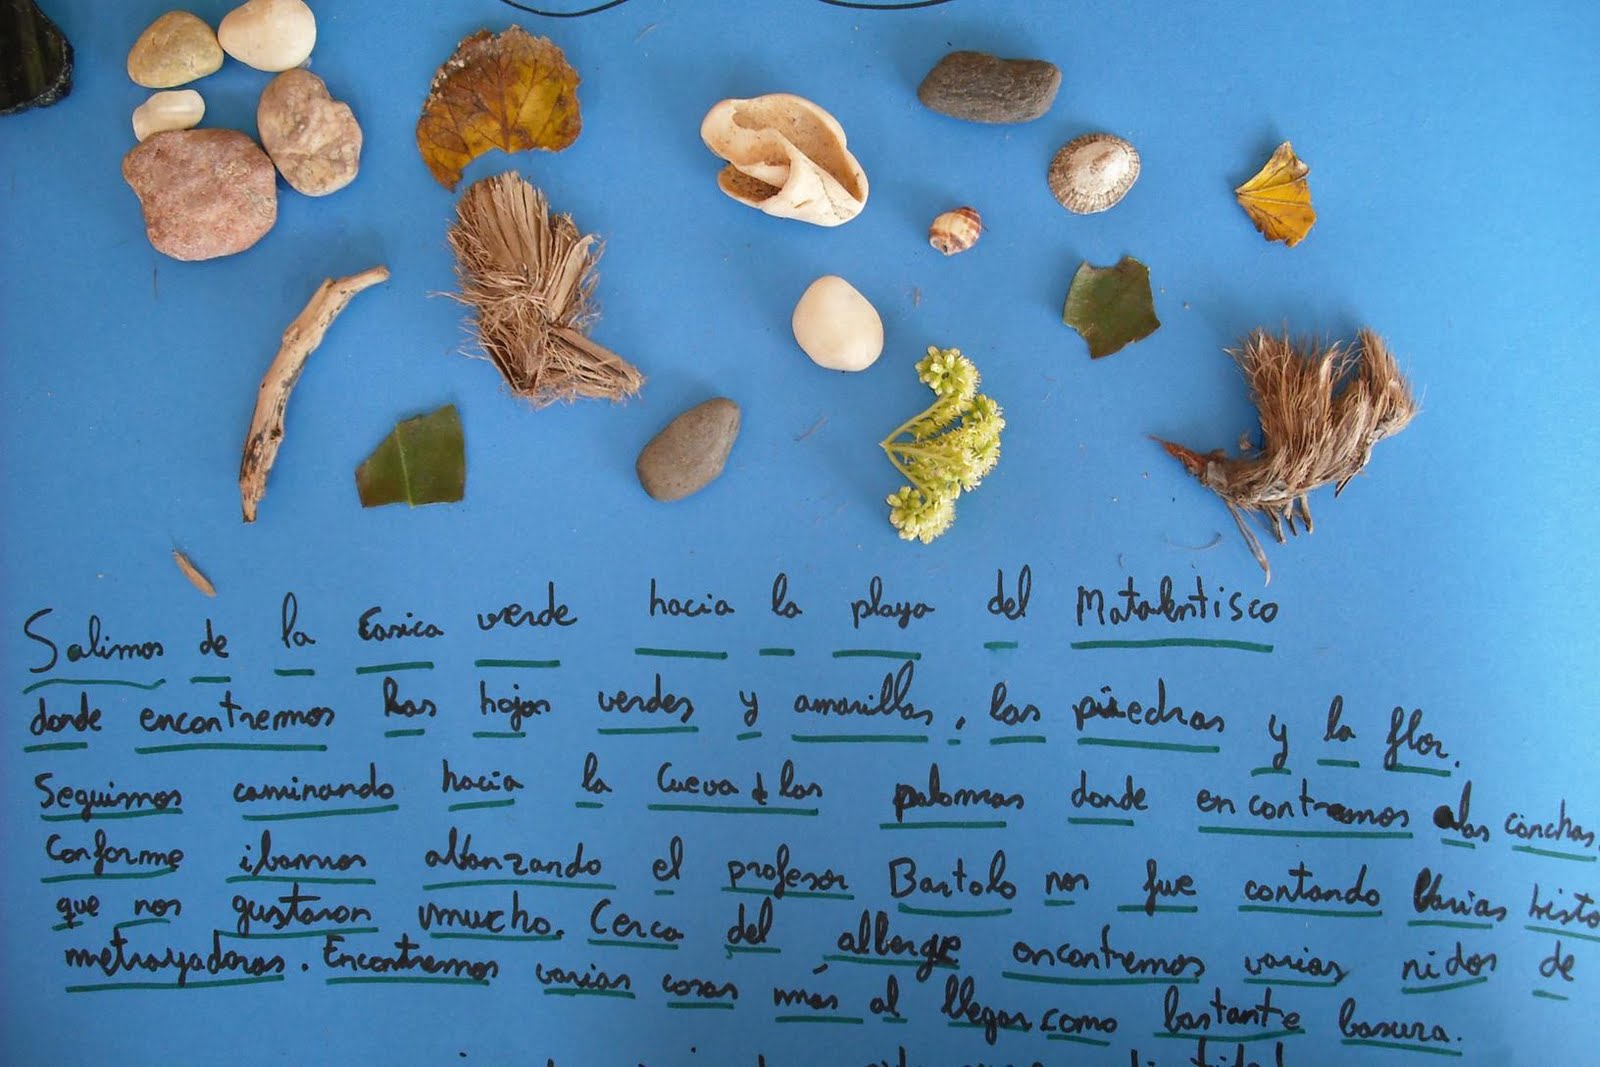 Salimos de la Casica verde hacia la playa del Matalentisco
donde encontremos las hojas verdes y amarillas, las piedras y la flor.
Seguimos caminando hacia la Cueva d las palomas donde encontremos las conchas.
Conforme ibamos abanzando el profesor Bartolo nos fue contando varias histo
que nos gustaron mucho. Cerca del alberge encontremos varios nidos de
metrayadoras. Encontremos varias cosas más al llegar como bastante basura.